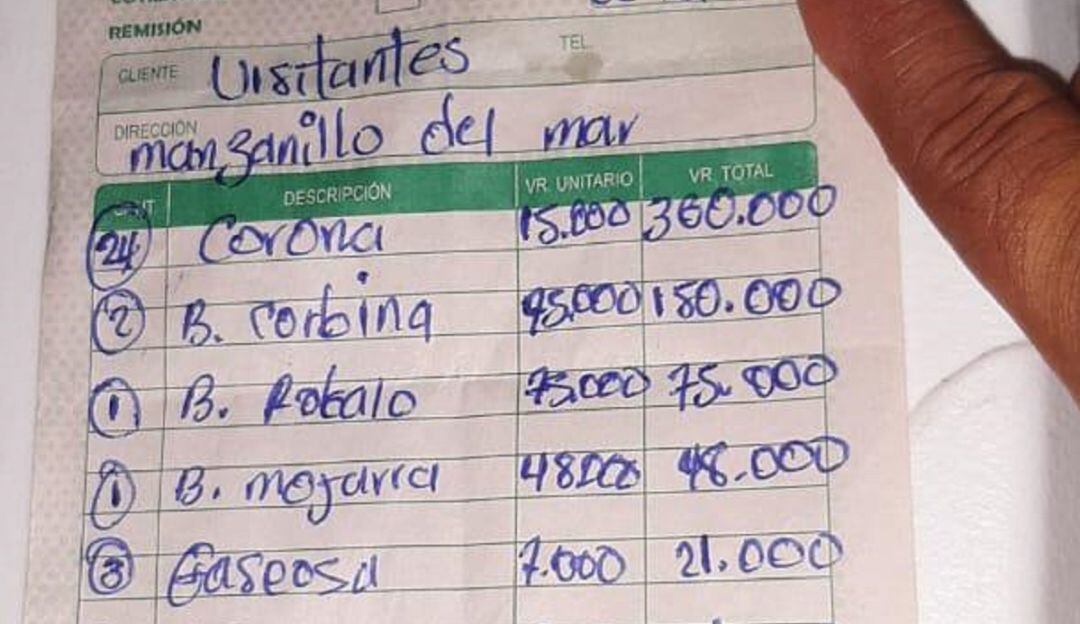 REMISIÓN
CLIENTE Visitantes TEL
DIRECCIÓN manzanillo del mar
DESCRIPCIÓN VR. UNITARIO VR. TOTAL
24 Corona 15.000 360.000
2 B. corbina 150.000
1 B. Robalo 75.000 75.000
1 B. mojarra 48.000 48.000
3 Gaseosa 7.000 21.000